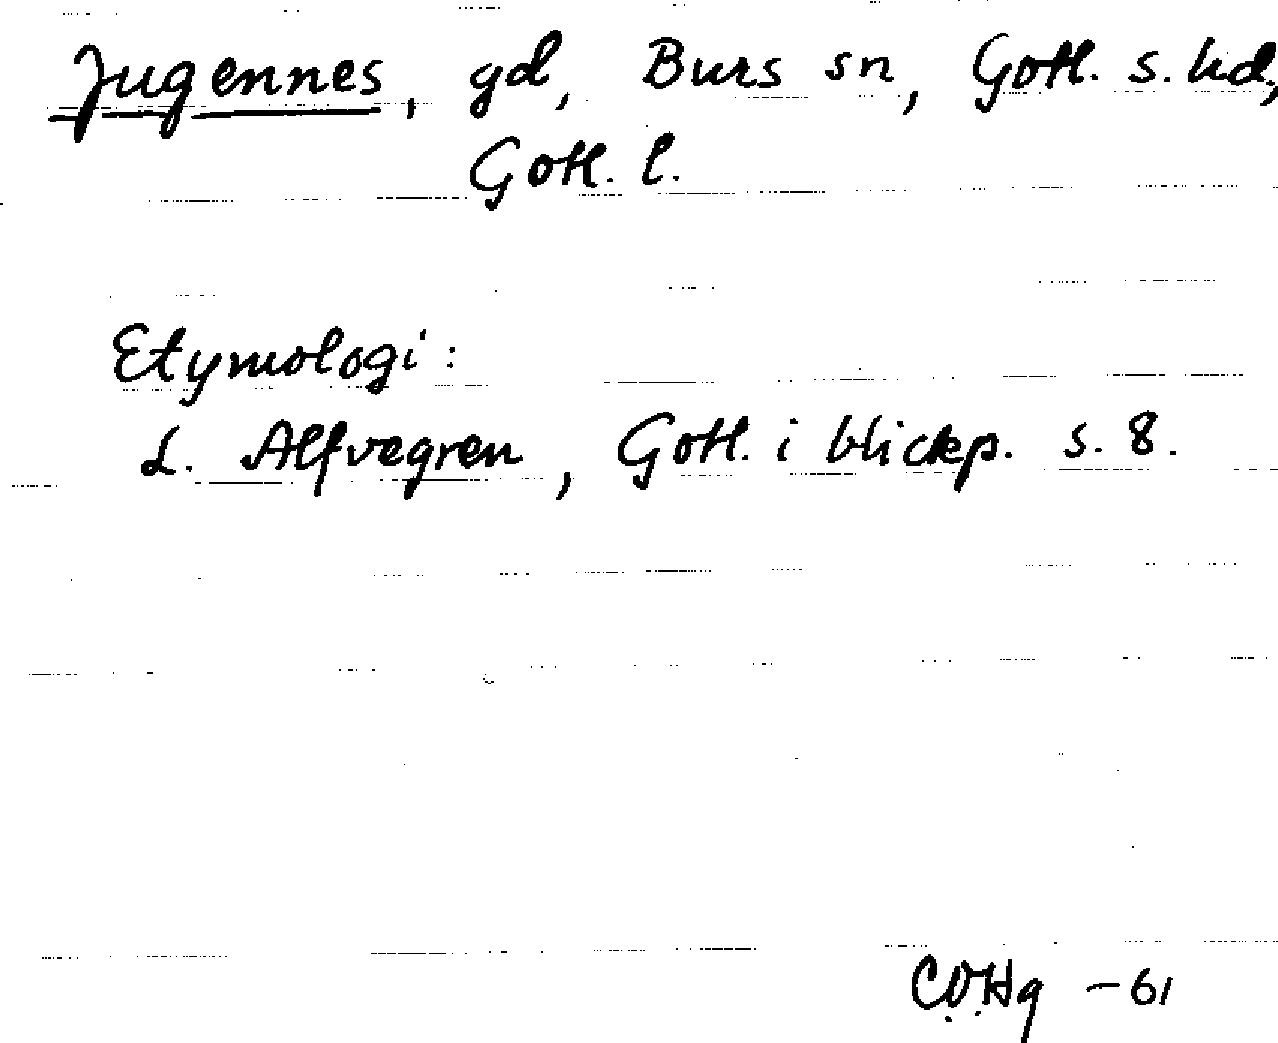 Jugennes, gd, Burs sn, Gotl. s. hd,
Gotl. l.
Etymologi:
L. Alfvegren, Gotl. i blickp. s. 8.
C.O.Hg -61